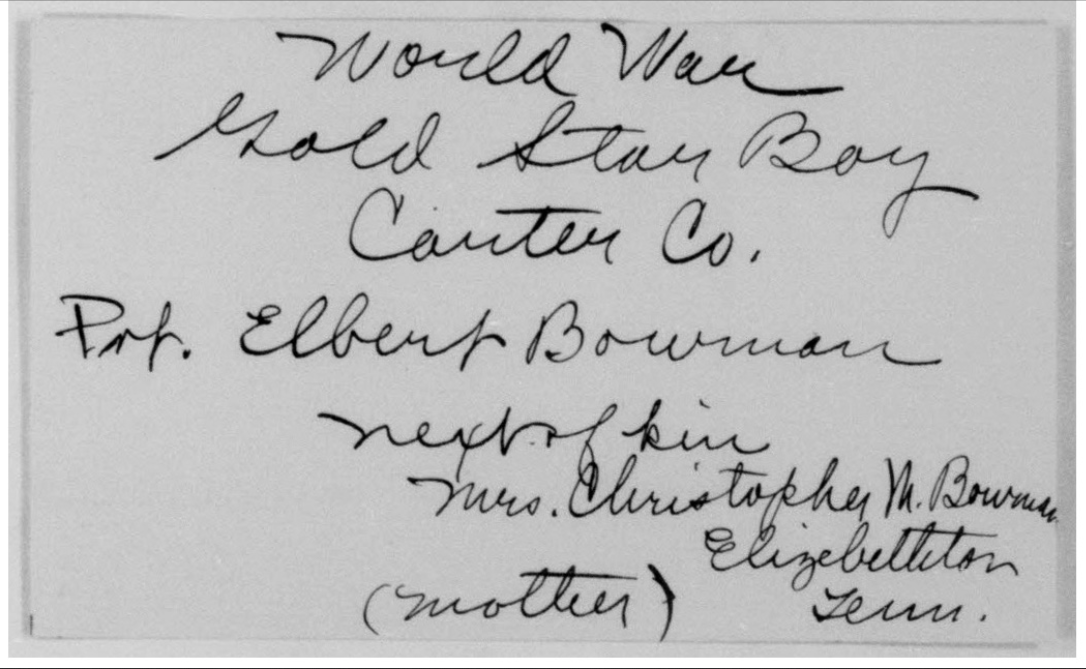 World War
Gold Star Boy
Carter Co.
Pvt. Elbert Bowman
next of kin
Mrs. Christopher M. Bowman
Elizebethton
(mother) Tenn.